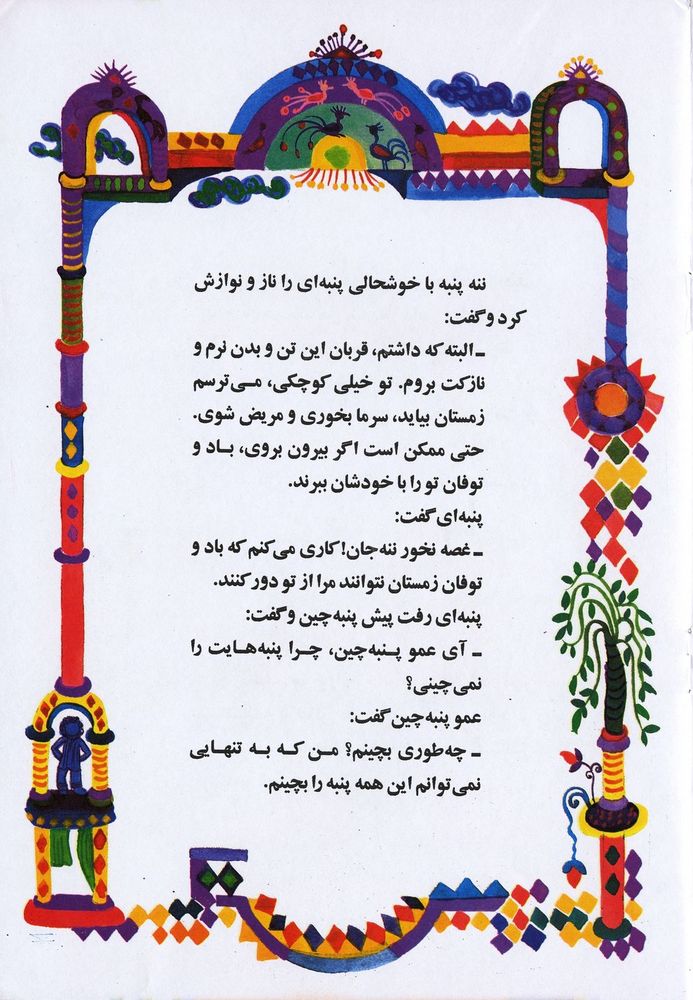 ننه پنبه با خوشحالی پنبه‌ای را ناز و نوازش
کرد و گفت:
ـ البته که داشتم، قربان این تن و بدن نرم و
نازکت بروم. تو خیلی کوچکی، می‌ترسم
زمستان بیاید، سرما بخوری و مریض شوی.
حتی ممکن است اگر بیرون بروی، باد و
توفان تو را با خودشان ببرند.
پنبه‌ای گفت:
ـ غصه نخور ننه‌جان! کاری می‌کنم که باد و
توفان زمستان نتوانند مرا از تو دور کنند.
پنبه‌ای رفت پیش پنبه‌چین و گفت:
ـ آی عمو پنبه‌چین، چرا پنبه‌هایت را
نمی‌چینی؟
عمو پنبه‌چین گفت:
ـ چه‌طوری بچینم؟ من که به تنهایی
نمی‌توانم این همه پنبه را بچینم.